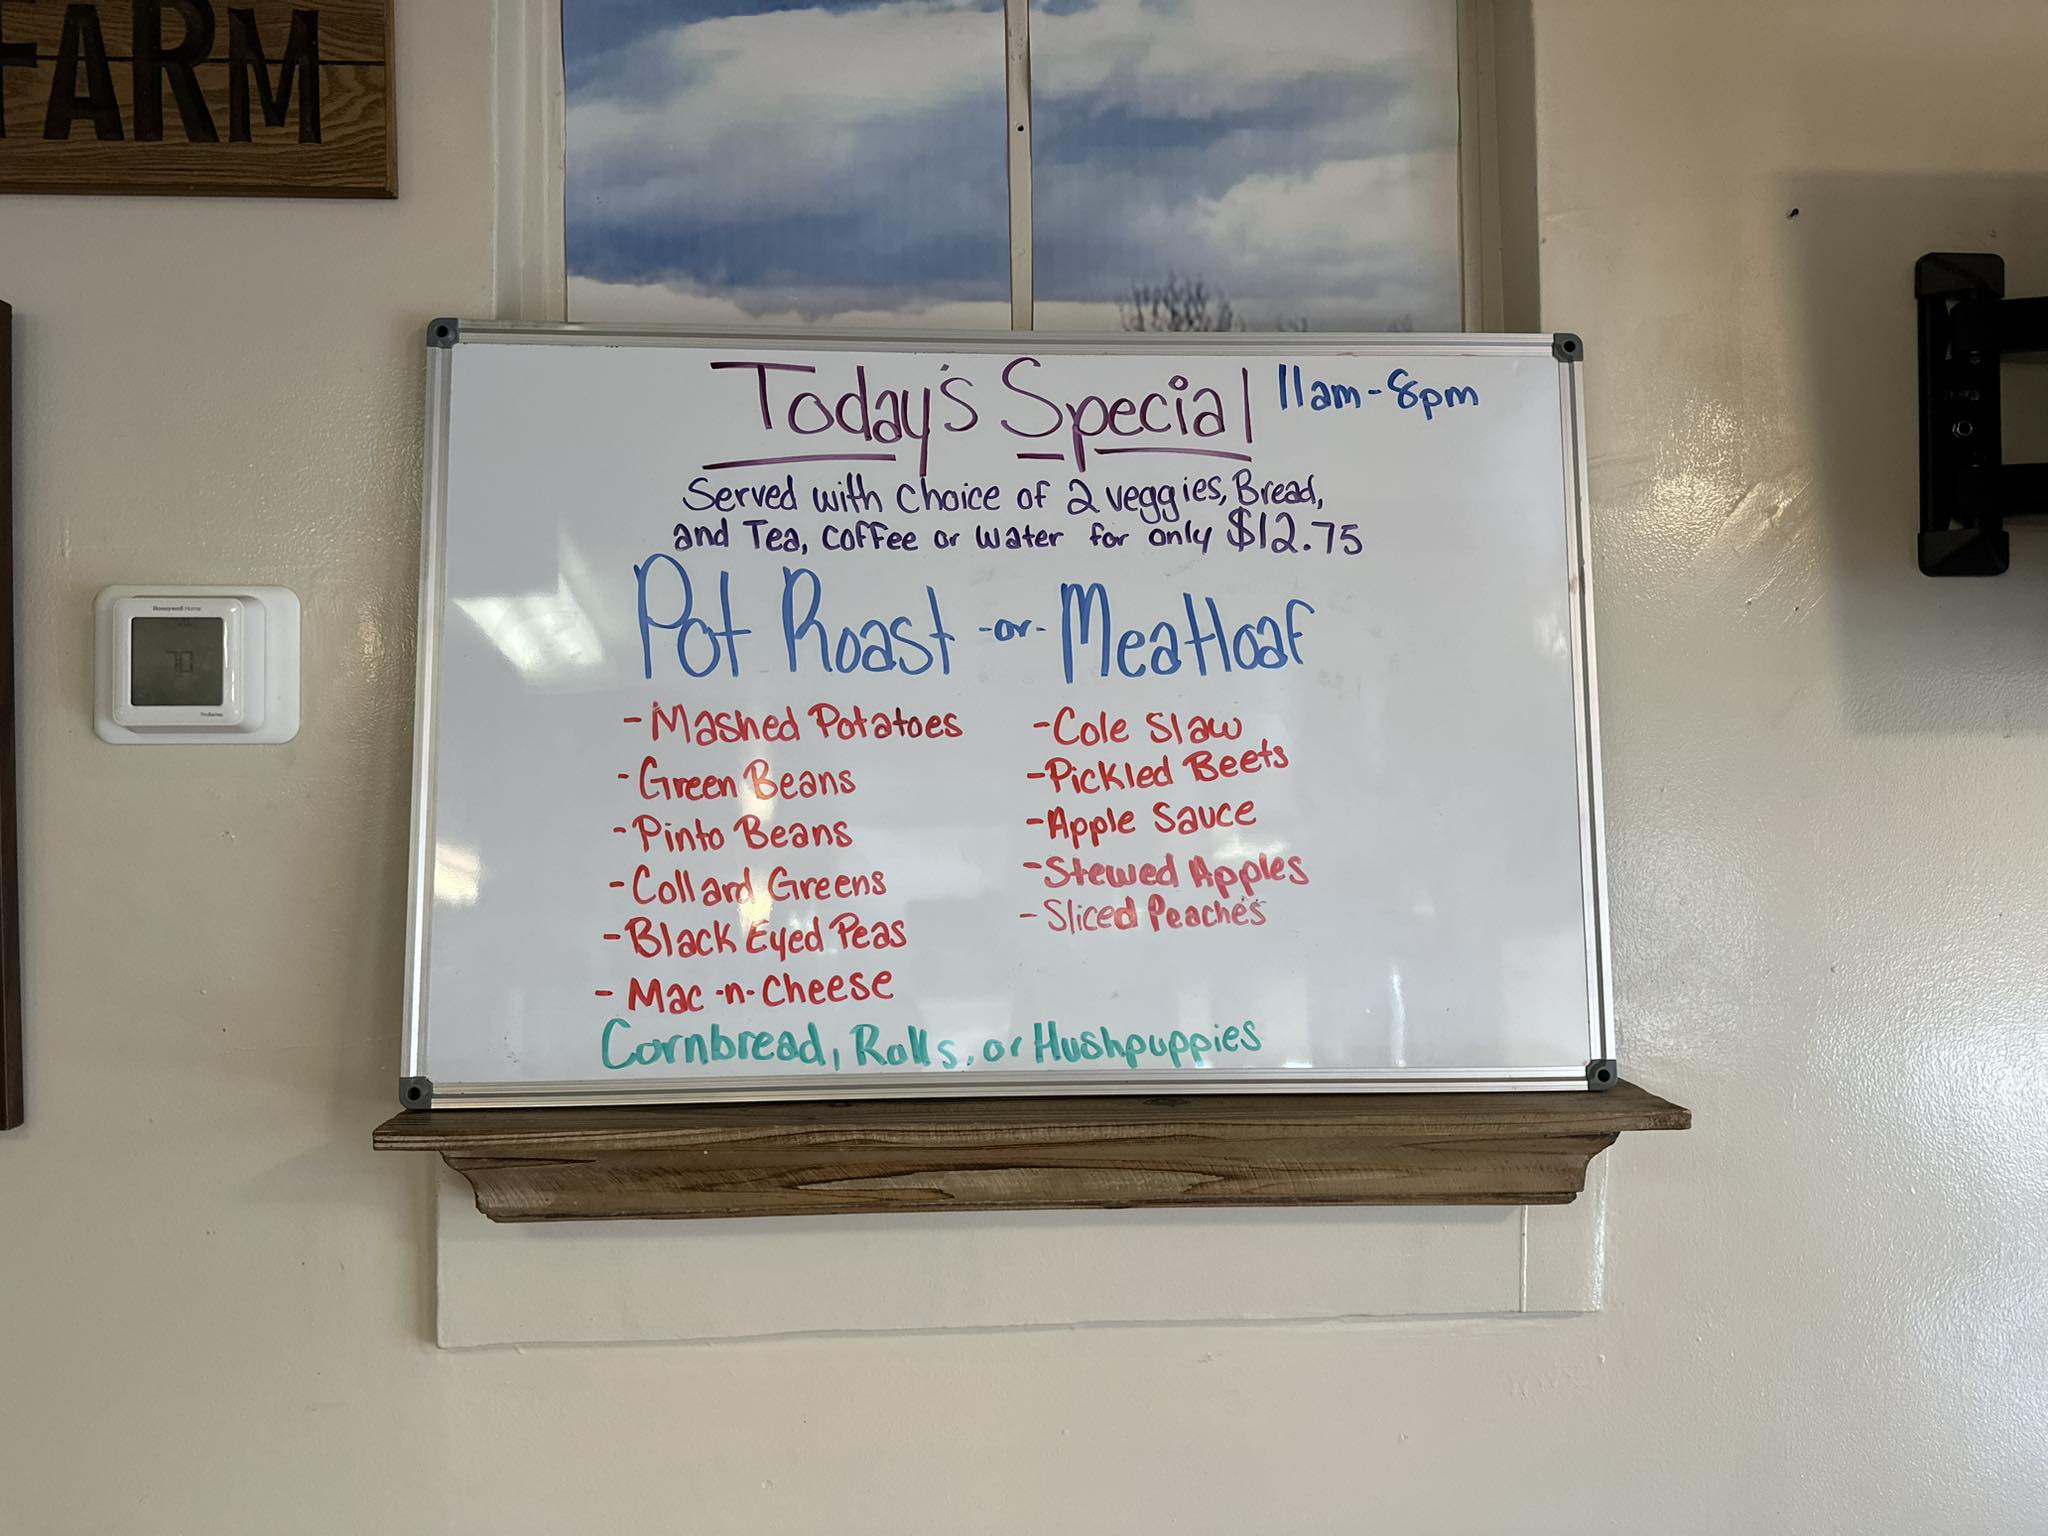 FARM
Today's Special 11am-8pm
Served with choice of 2 veggies, Bread,
and Tea, Coffee or Water for only $12.75
Pot Roast -or- Meatloaf
- Mashed Potatoes
- Green Beans
- Pinto Beans
- Collard Greens
- Black Eyed Peas
- Mac -n- Cheese
- Cole Slaw
- Pickled Beets
- Apple Sauce
- Stewed Apples
- Sliced Peaches
Cornbread, Rolls, or Hushpuppies
Honeywell Home
70
ProSeries